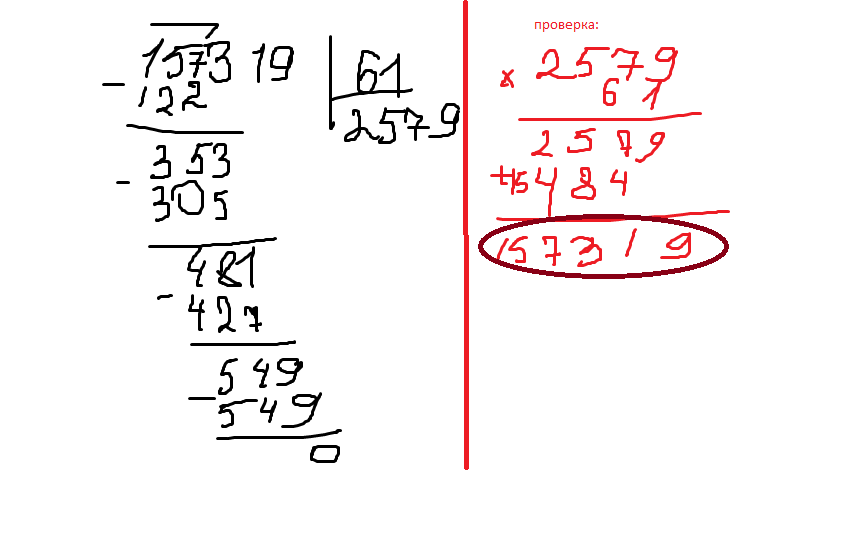 157319 61
- 122 2579
- 353
305
- 481
427
- 549
549
0
проверка:
x 2579
61
2579
+ 15484
157319